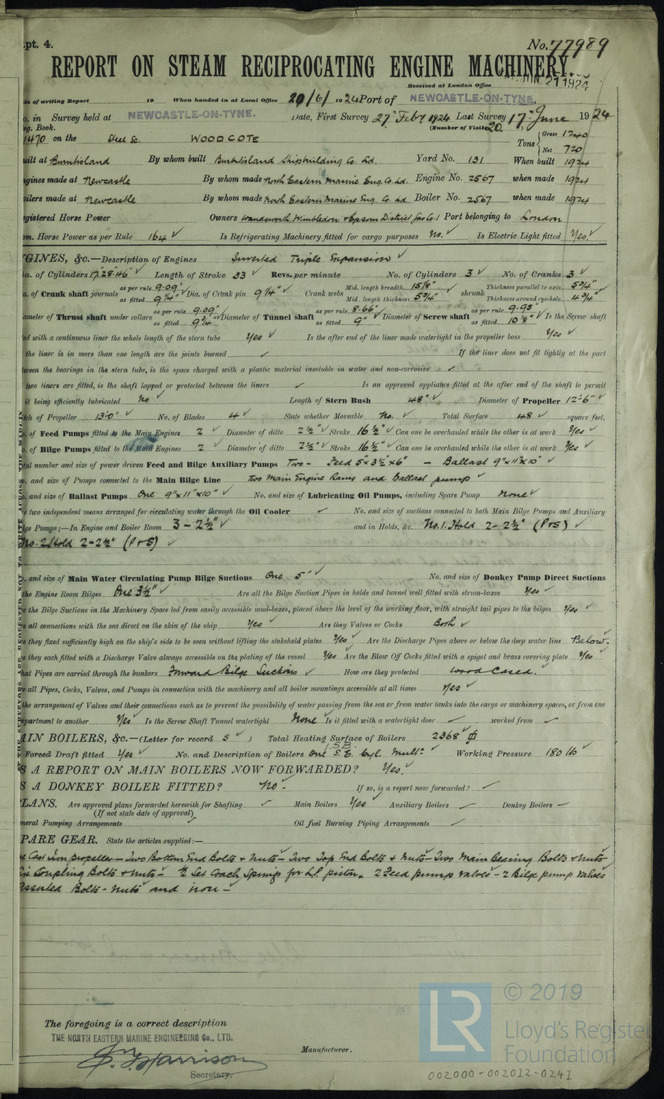 pt. 4.
No. 77989
REPORT ON STEAM RECIPROCATING ENGINE MACHINERY.
Received at London Office
of writing Report 19 When handed in at Local Office 20/6/1924 Port of NEWCASTLE-ON-TYNE.
in Survey held at NEWCASTLE-ON-TYNE. Date, First Survey 27th Feby 1924 Last Survey 17th June 1924
Book. (Number of Visits 20)
1470 on the Steel Sc. WOODCOTE Tons { Gross 1740 Net 720
uilt at Burntisland By whom built Burntisland Shipbuilding Co. Ld. Yard No. 131 When built 1924
ngines made at Newcastle By whom made North Eastern Marine Eng. Co. Ld. Engine No. 2567 when made 1924
oilers made at Newcastle By whom made North Eastern Marine Eng. Co. Ld Boiler No. 2567 when made 1924
egistered Horse Power Owners Wandsworth, Wimbledon & Epsom District Gas Co. Port belonging to London
om. Horse Power as per Rule 164 Is Refrigerating Machinery fitted for cargo purposes No. Is Electric Light fitted Yes.
GINES, &c.—Description of Engines Inverted Triple Expansion
of Cylinders 17"-28"-46" Length of Stroke 33 Revs. per minute No. of Cylinders 3 No. of Cranks 3
of Crank shaft journals as per rule 9.09" as fitted 9¼" Dia. of Crank pin 9¼" Crank webs Mid. length breadth 15⅛" Mid. length thickness 5¾" shrunk Thickness parallel to axis 5¾" Thickness around eyehole 4¾"
ameter of Thrust shaft under collars as per rule 9.09" as fitted 9¼" Diameter of Tunnel shaft as per rule 8.66" as fitted 9" Diameter of Screw shaft as per rule 9.95" as fitted 10⅛" Is the Screw shaft
ed with a continuous liner the whole length of the stern tube Yes Is the after end of the liner made watertight in the propeller boss Yes
the liner is in more than one length are the joints burned If the liner does not fit tightly at the part
ween the bearings in the stern tube, is the space charged with a plastic material insoluble in water and non-corrosive
two liners are fitted, is the shaft lapped or protected between the liners Is an approved appliance fitted at the after end of the shaft to permit
it being efficiently lubricated No Length of Stern Bush 48" Diameter of Propeller 12'-6"
tch of Propeller 13'0" No. of Blades 4 State whether Moveable No. Total Surface 48 square feet.
of Feed Pumps fitted to the Main Engines 2 Diameter of ditto 2½" Stroke 16½" Can one be overhauled while the other is at work Yes
of Bilge Pumps fitted to the Main Engines 2 Diameter of ditto 2½" Stroke 16½" Can one be overhauled while the other is at work Yes
tal number and size of power driven Feed and Bilge Auxiliary Pumps Two - Feed 5"x3½"x6" - Ballast 9"x11"x10"
and size of Pumps connected to the Main Bilge Line two Main Engine Rams and Ballast pump
and size of Ballast Pumps One 9"x11"x10" No. and size of Lubricating Oil Pumps, including Spare Pump None
two independent means arranged for circulating water through the Oil Cooler No. and size of suctions connected to both Main Bilge Pumps and Auxiliary
ge Pumps;—In Engine and Boiler Room 3 - 2½" and in Holds, &c. No.1. Hold 2 - 2½" (P&S)
No. 2. Hold 2-2½" (P&S)
and size of Main Water Circulating Pump Bilge Suctions One 5" No. and size of Donkey Pump Direct Suctions
the Engine Room Bilges One 3½" Are all the Bilge Suction Pipes in holds and tunnel well fitted with strum-boxes Yes
the Bilge Suctions in the Machinery Space led from easily accessible mud-boxes, placed above the level of the working floor, with straight tail pipes to the bilges Yes
all connections with the sea direct on the skin of the ship Yes Are they Valves or Cocks Both
they fixed sufficiently high on the ship's side to be seen without lifting the stokehold plates Yes Are the Discharge Pipes above or below the deep water line Below
they each fitted with a Discharge Valve always accessible on the plating of the vessel Yes Are the Blow Off Cocks fitted with a spigot and brass covering plate Yes
hat Pipes are carried through the bunkers Forward Bilge Suctions How are they protected Wood Cased.
all Pipes, Cocks, Valves, and Pumps in connection with the machinery and all boiler mountings accessible at all times Yes
the arrangement of Valves and their connections such as to prevent the possibility of water passing from the sea or from water tanks into the cargo or machinery spaces, or from one
partment to another Yes Is the Screw Shaft Tunnel watertight None Is it fitted with a watertight door worked from
AIN BOILERS, &c.—(Letter for record S) Total Heating Surface of Boilers 2368
Forced Draft fitted Yes No. and Description of Boilers One S.E. Cyl. Mult. Working Pressure 180 lb
S A REPORT ON MAIN BOILERS NOW FORWARDED? Yes.
S A DONKEY BOILER FITTED? No. If so, is a report now forwarded?
LANS. Are approved plans forwarded herewith for Shafting Main Boilers Yes Auxiliary Boilers Donkey Boilers
(If not state date of approval)
neral Pumping Arrangements Oil fuel Burning Piping Arrangements
PARE GEAR. State the articles supplied:—
Cast iron propeller — Two Bottom End Bolts & Nuts — Two Top End Bolts & Nuts — Two Main Bearing Bolts & Nuts
Coupling Bolts & Nuts — ½ Set Coach Springs for L.P. piston. 2 Feed pump valves - 2 Bilge pump valves
ssorted Bolts - Nuts and iron —
The foregoing is a correct description
THE NORTH EASTERN MARINE ENGINEERING Co., LTD.
Harrison
Secretary.
Manufacturer.
LR
© 2019
Lloyd's Register
Foundation
002000-002012-0241